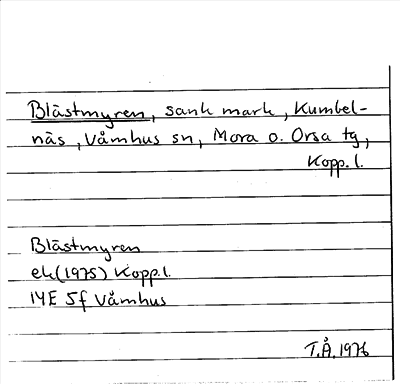 Blästmyren, sank mark, Kumbel-
näs, Våmhus sn, Mora o. Orsa tg,
Kopp. l.
Blästmyren
ek (1975) Kopp. l.
14E 5f Våmhus
T.Å. 1976